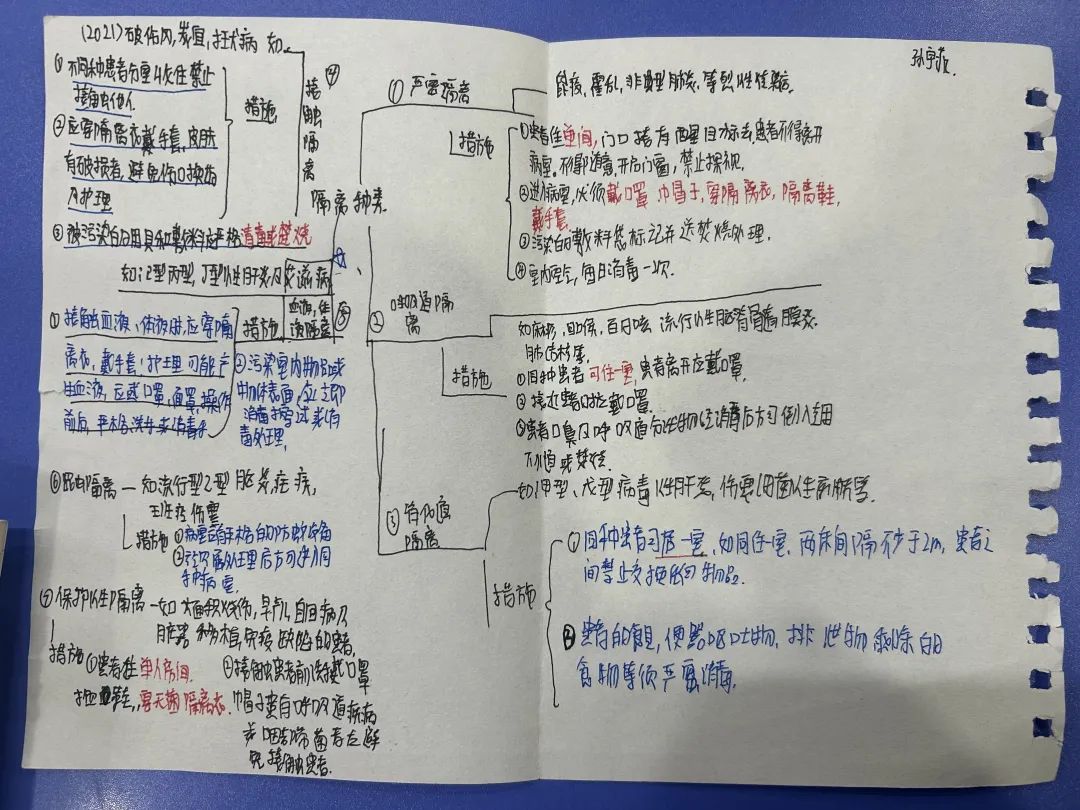 (2021)破伤风,炭疽,狂犬病 如
①不同种患者分室收住禁止
接触他人
②应穿隔离衣戴手套,皮肤
有破损者,避免伤口换药
及护理
措施
④
接触隔离
③被污染的用具和敷料应严格消毒或焚烧
隔离种类
如乙型丙型,丁型肝炎及艾滋病
血液,体液隔离
⑤
措施
①接触血液、体液时,应穿隔
离衣,戴手套;护理可能产
生血液,应戴口罩,面罩,操作
前后,严格洗手或消毒手
②污染室内物品或
物体表面,应立即
消毒擦拭或消
毒处理,
⑥昆虫隔离—如流行型乙型脑炎疟疾,
班疹伤寒
措施
①病室有严格的防蚊设备
②经灭虱处理后方可进入同
种病室
⑦保护性隔离—如大面积烧伤,早产儿,白血病及
脏器移植,免疫缺陷的患者,
措施①患者住单人房间,
穿无菌隔离衣.
②接触患者前洗手戴口罩
帽子患有呼吸道疾病
或咽部带菌者应避
免接触患者.
孙宇
①严密隔离
鼠疫,霍乱,非典型肺炎,等烈性传染病.
措施
①患者住单间,门口挂有醒目标志,患者不得离开
病室.不得随意开启门窗,禁止探视.
②进入病室,必须戴口罩 帽子,穿隔离衣,隔离鞋,
戴手套.
③污染的敷料袋标记并送焚烧处理.
④室内空气,每日消毒一次.
②呼吸道隔
离
如麻疹,白喉,百日咳 流行性脑脊髓膜炎
肺结核等,
措施
①同种患者可住一室,患者离开应戴口罩,
②接近患者时应戴口罩
③患者口鼻及呼吸道分泌物经消毒后方可倒入
下水道或焚烧.
③消化道
隔离
如甲型、戊型病毒性肝炎,伤寒细菌性痢疾等.
措施
①同种患者可居一室,如同住一室,两床间隔不少于2m,患者之
间禁止交换任何物品.
②患者的食具,便器呕吐物,排泄物剩余的
食物等须严密消毒.